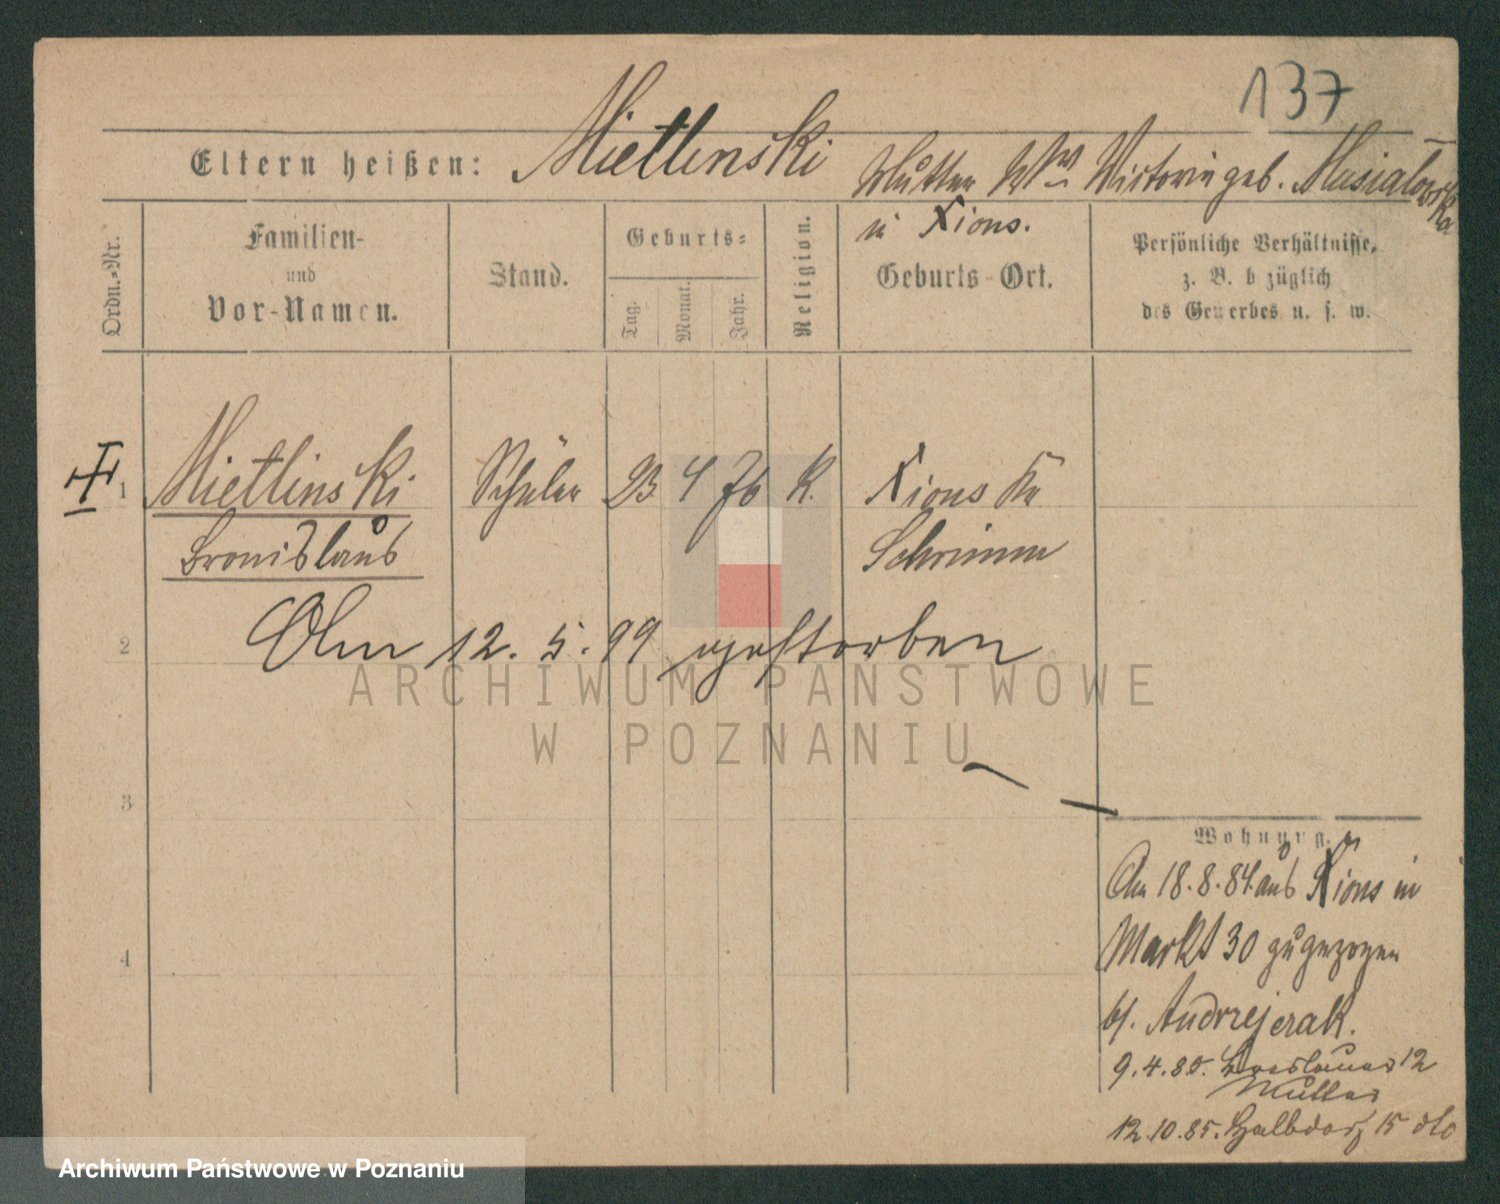 137
Eltern heißen: Mietlinski Mutter Ww Victorie geb. Musialowska
in Xions.
Ordn.-Nr.
Familien-
und
Vor-Namen.
Stand.
Geburts-
Tag.
Monat.
Jahr.
Religion.
Geburts-Ort.
Persönliche Verhältnisse,
z. B. bezüglich
des Gewerbes u. s. w.
1 Mietlinski Schüler 23 4 76 K. Xions Kr
Bronislaus Schrimm
2 Am 12. 5. 99 gestorben
3
4
Wohnung.
Am 18.8.84 aus Xions in
Markt 30 zugezogen
b/. Andrzejczak.
9.4.85. Breslauer 12
Mutter
12.10.85. Halbdorf 15 dto
ARCHIWUM PAŃSTWOWE
W POZNANIU
Archiwum Państwowe w Poznaniu